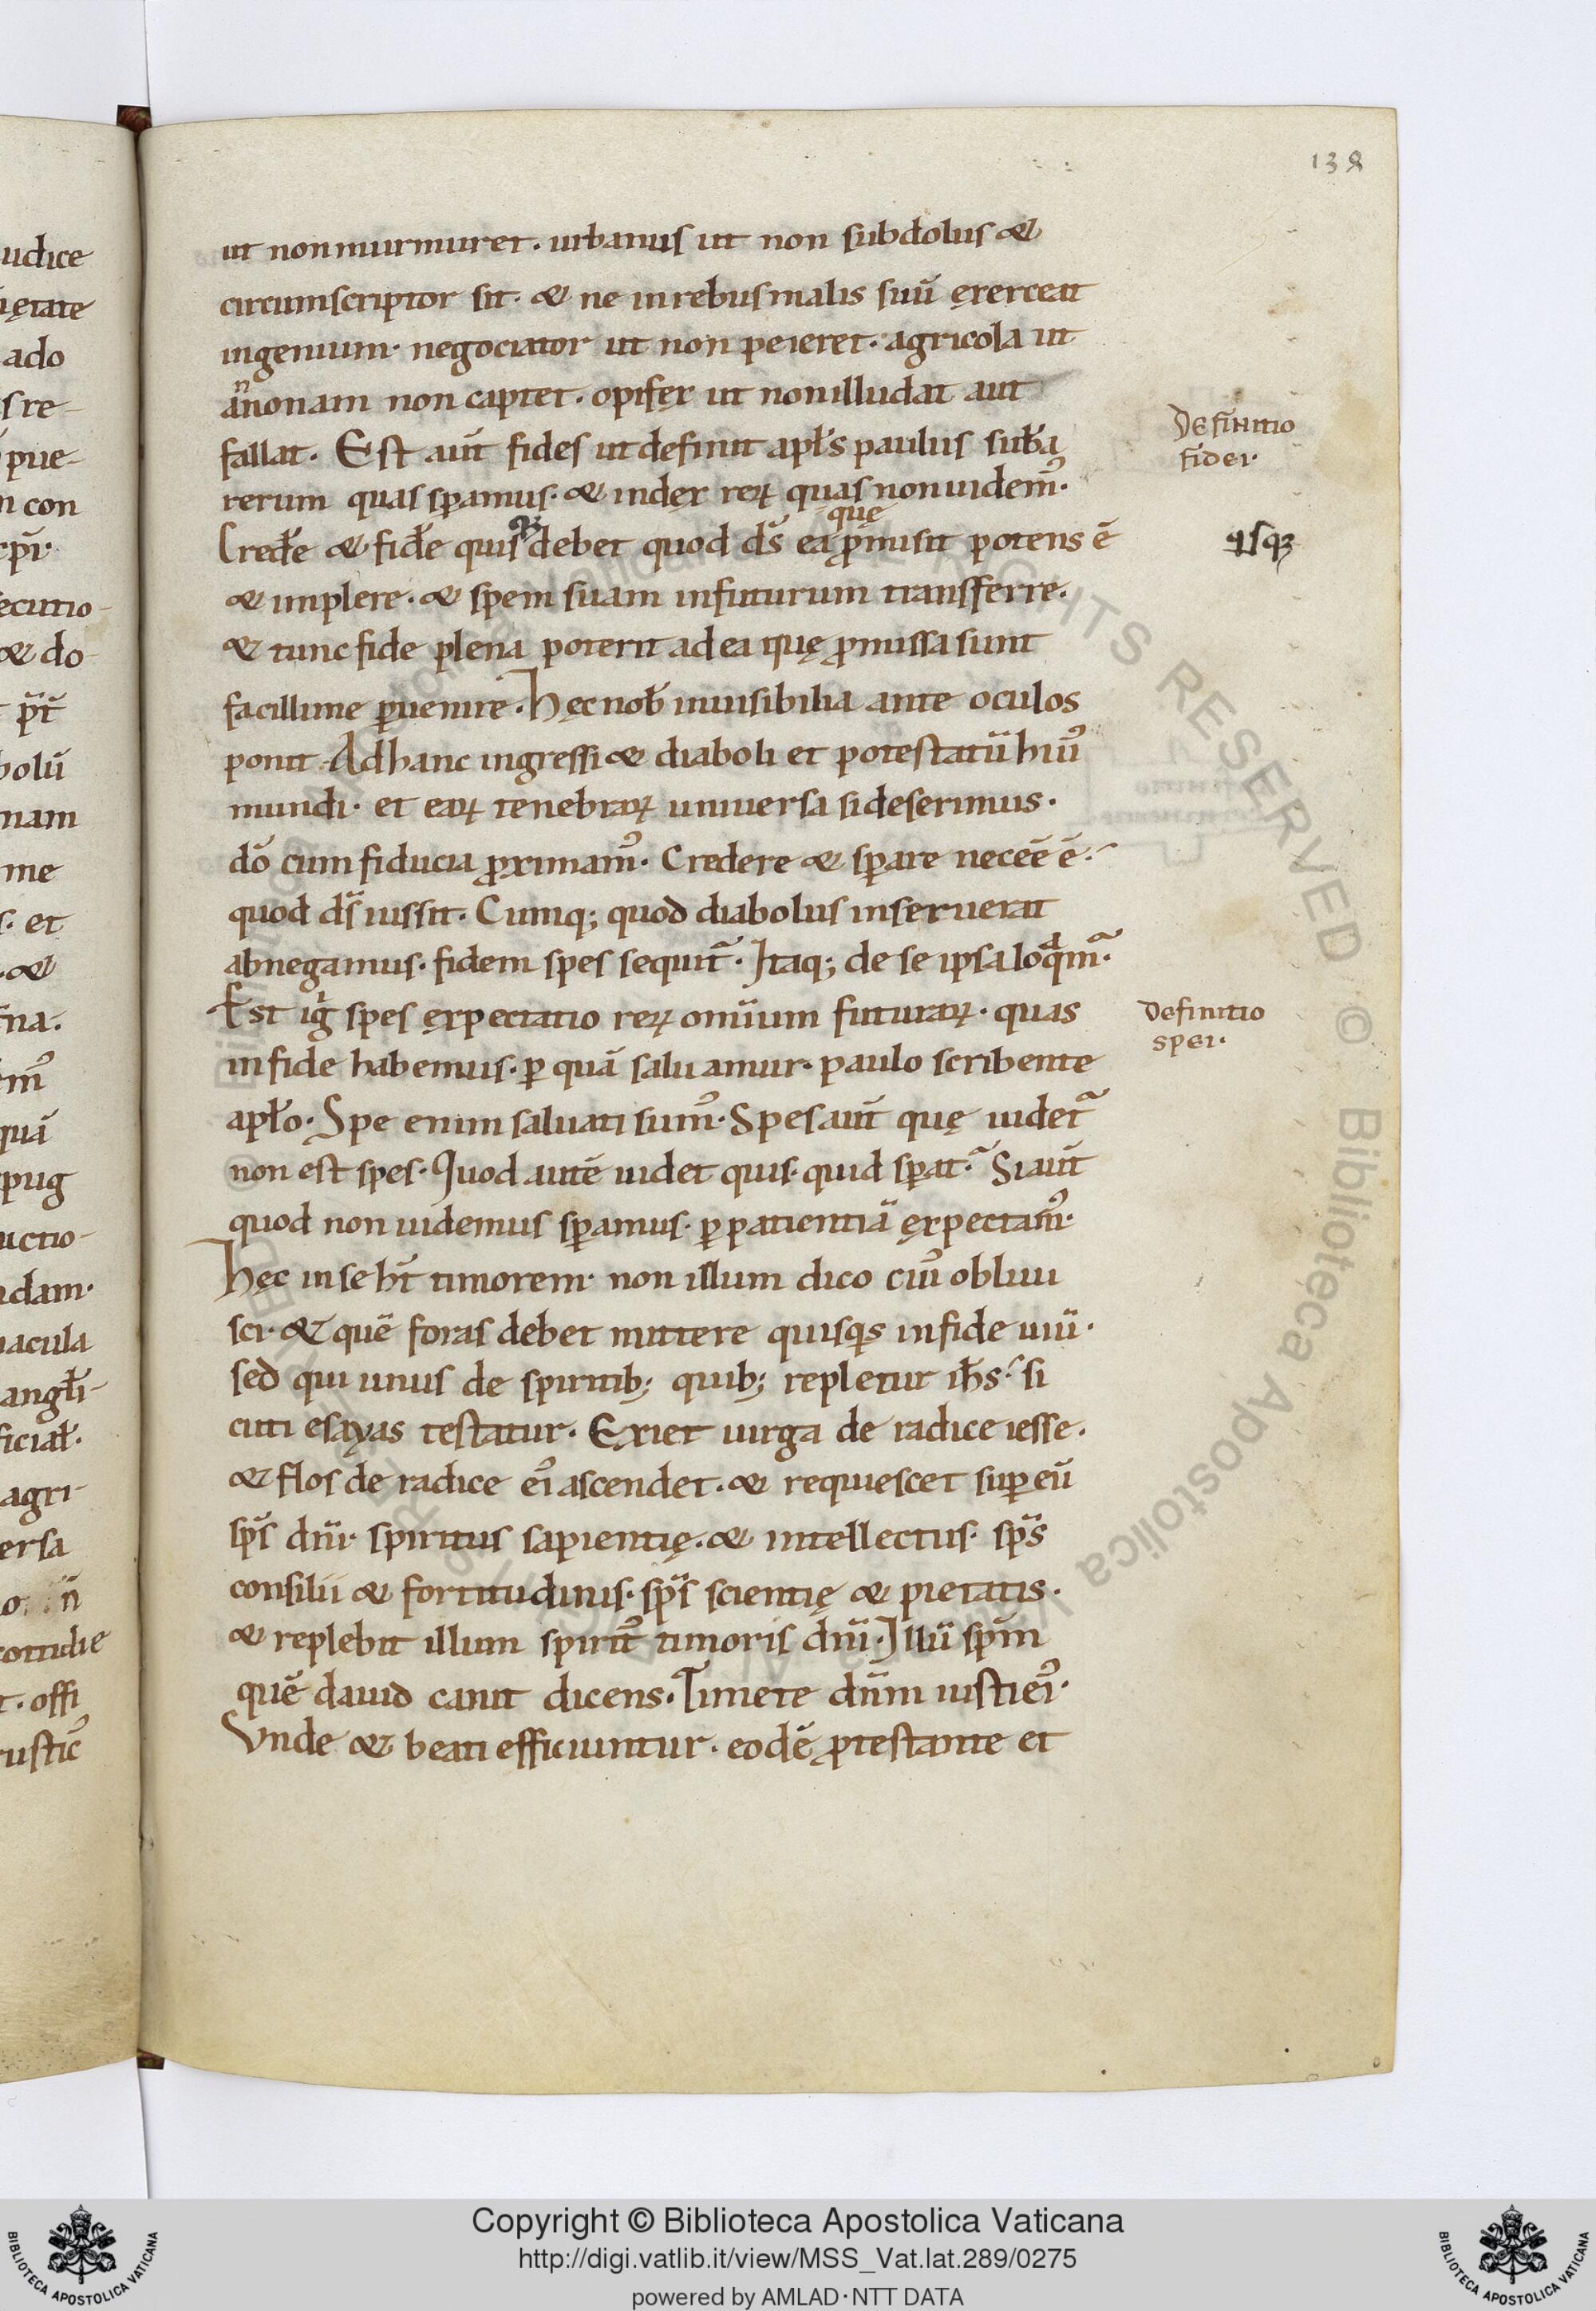 138
ut non murmuret. urbanus ut non subdolus &
circumscriptor sit. & ne in rebus malis suū ęxerceat
ingenium. negociator ut non peieret. agricola ut
annonam non captet. opifęx ut non illudat aut
fallat. Est aut̄ fides ut definit apl̄s paulus sub̄a
Definitio
fidei.
rerum quas sꝑamus. & indęx reꝝ quas non uidem᾽.
Cred̄e & fid̄e quisqꝫ debet quod ds̄ ea quę ꝓmisit potens ē
qisqꝫ
& implere. & spem suam in futurum transferre.
& tunc fide plena poterit ad ea quę ꝓmissa sunt
facillime ꝑuenire. Hęc nob̄ inuisibilia ante oculos
ponit. Ad hanc ingressi & diaboli et potestatū hui᾽
mundi. et eaꝝ tenebraꝝ uniuersa si deserimus.
dō cum fiducia ꝓximam᾽. Credere & sꝑare neceē ē.
quod ds̄ iussit. Cumq; quod diabolus inseruerat
abnegamus. fidem spes sequit᷑. Itaq; de se ipsa loqam᷑.
Est igͥ spes ęxpectatio reꝝ omīum futuraꝝ. quas
Definitio
spei.
in fide habemus. ꝑ quā saluamur. paulo scribente
apl̄o. Spe enim saluati sum᾽. Spes aut̄ quę uidet᷑
non est spes. Quod autē uidet quis. quid sꝑat. Si aut̄
quod non uidemus sꝑamus. ꝑ patientiā ęxpectam᾽.
Hęc in se ht̄ timorem. non illum dico cui᾽ obliui
sci. & quē foras debet mittere quisqs in fide uiū.
sed qui unus de spiritib; quib; repletur ih̄s. si
cuti esayas testatur. Exiet uirga de radice iesse.
& flos de radice ei᾽ ascendet. & requiescet suꝑ eū
sp̄s dn̄i. spiritus sapientię. & intellectus. sp̄s
consilii & fortitudinis. sp̄s scientię & pietatis.
& replebit illum spirit᾽ timoris dn̄i. Illū sp̄m
quē dauid canit dicens. Timete dn̄m iusti ei᾽.
Vnde & beati efficiuntur. eodē ꝓtestante et
Copyright © Biblioteca Apostolica Vaticana
http://digi.vatlib.it/view/MSS_Vat.lat.289/0275
powered by AMLAD·NTT DATA
BIBLIOTECA APOSTOLICA VATICANA
BIBLIOTECA APOSTOLICA VATICANA